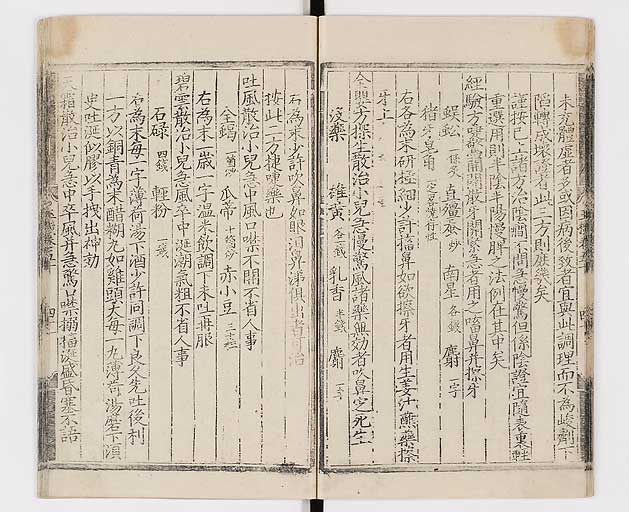 未充體虛者多或因病後致者宜與此調理而不為峻劑下
陷轉成壞證者此三方則庶幾矣
謹按已上諸方治陰癇不問急慢驚但係陰證宜隨表裏輕
重選用則半陰半陽慢脾之法例在其中矣
經驗方嚏驚開關散牙關緊急者用之嚏鼻并擦牙
蜈蚣一條炙 直殭蠶炒 南星各錢 麝一字
猪牙皂角
右各為末研極細少許搐鼻如欲擦牙者用生姜汁蘸藥擦
牙上
全嬰方探生散治小兒急慢驚風諸藥無効者吹鼻定死生
沒藥 雄黃各一錢 乳香半錢 麝一字
右為末少許吹鼻如眼淚鼻涕俱出者可治
按此二方捷嚏藥也
吐風散治小兒急中風口噤不開不省人事
全蝎 瓜蒂十箇炒 赤小豆三十粒
右為末一歲一字溫米飲調下未吐再服
碧雲散治小兒急風卒中涎潮氣粗不省人事
石碌四錢 輕粉一錢
右為末每一字薄荷湯下酒少許同調下良久先吐後利
一方以銅青為末醋糊丸如雞頭大每一丸薄荷湯磨下須
史吐涎似膠以手拽出神効
霜散治小兒急中卒風并急驚口噤搦搐涎盛昏塞不語